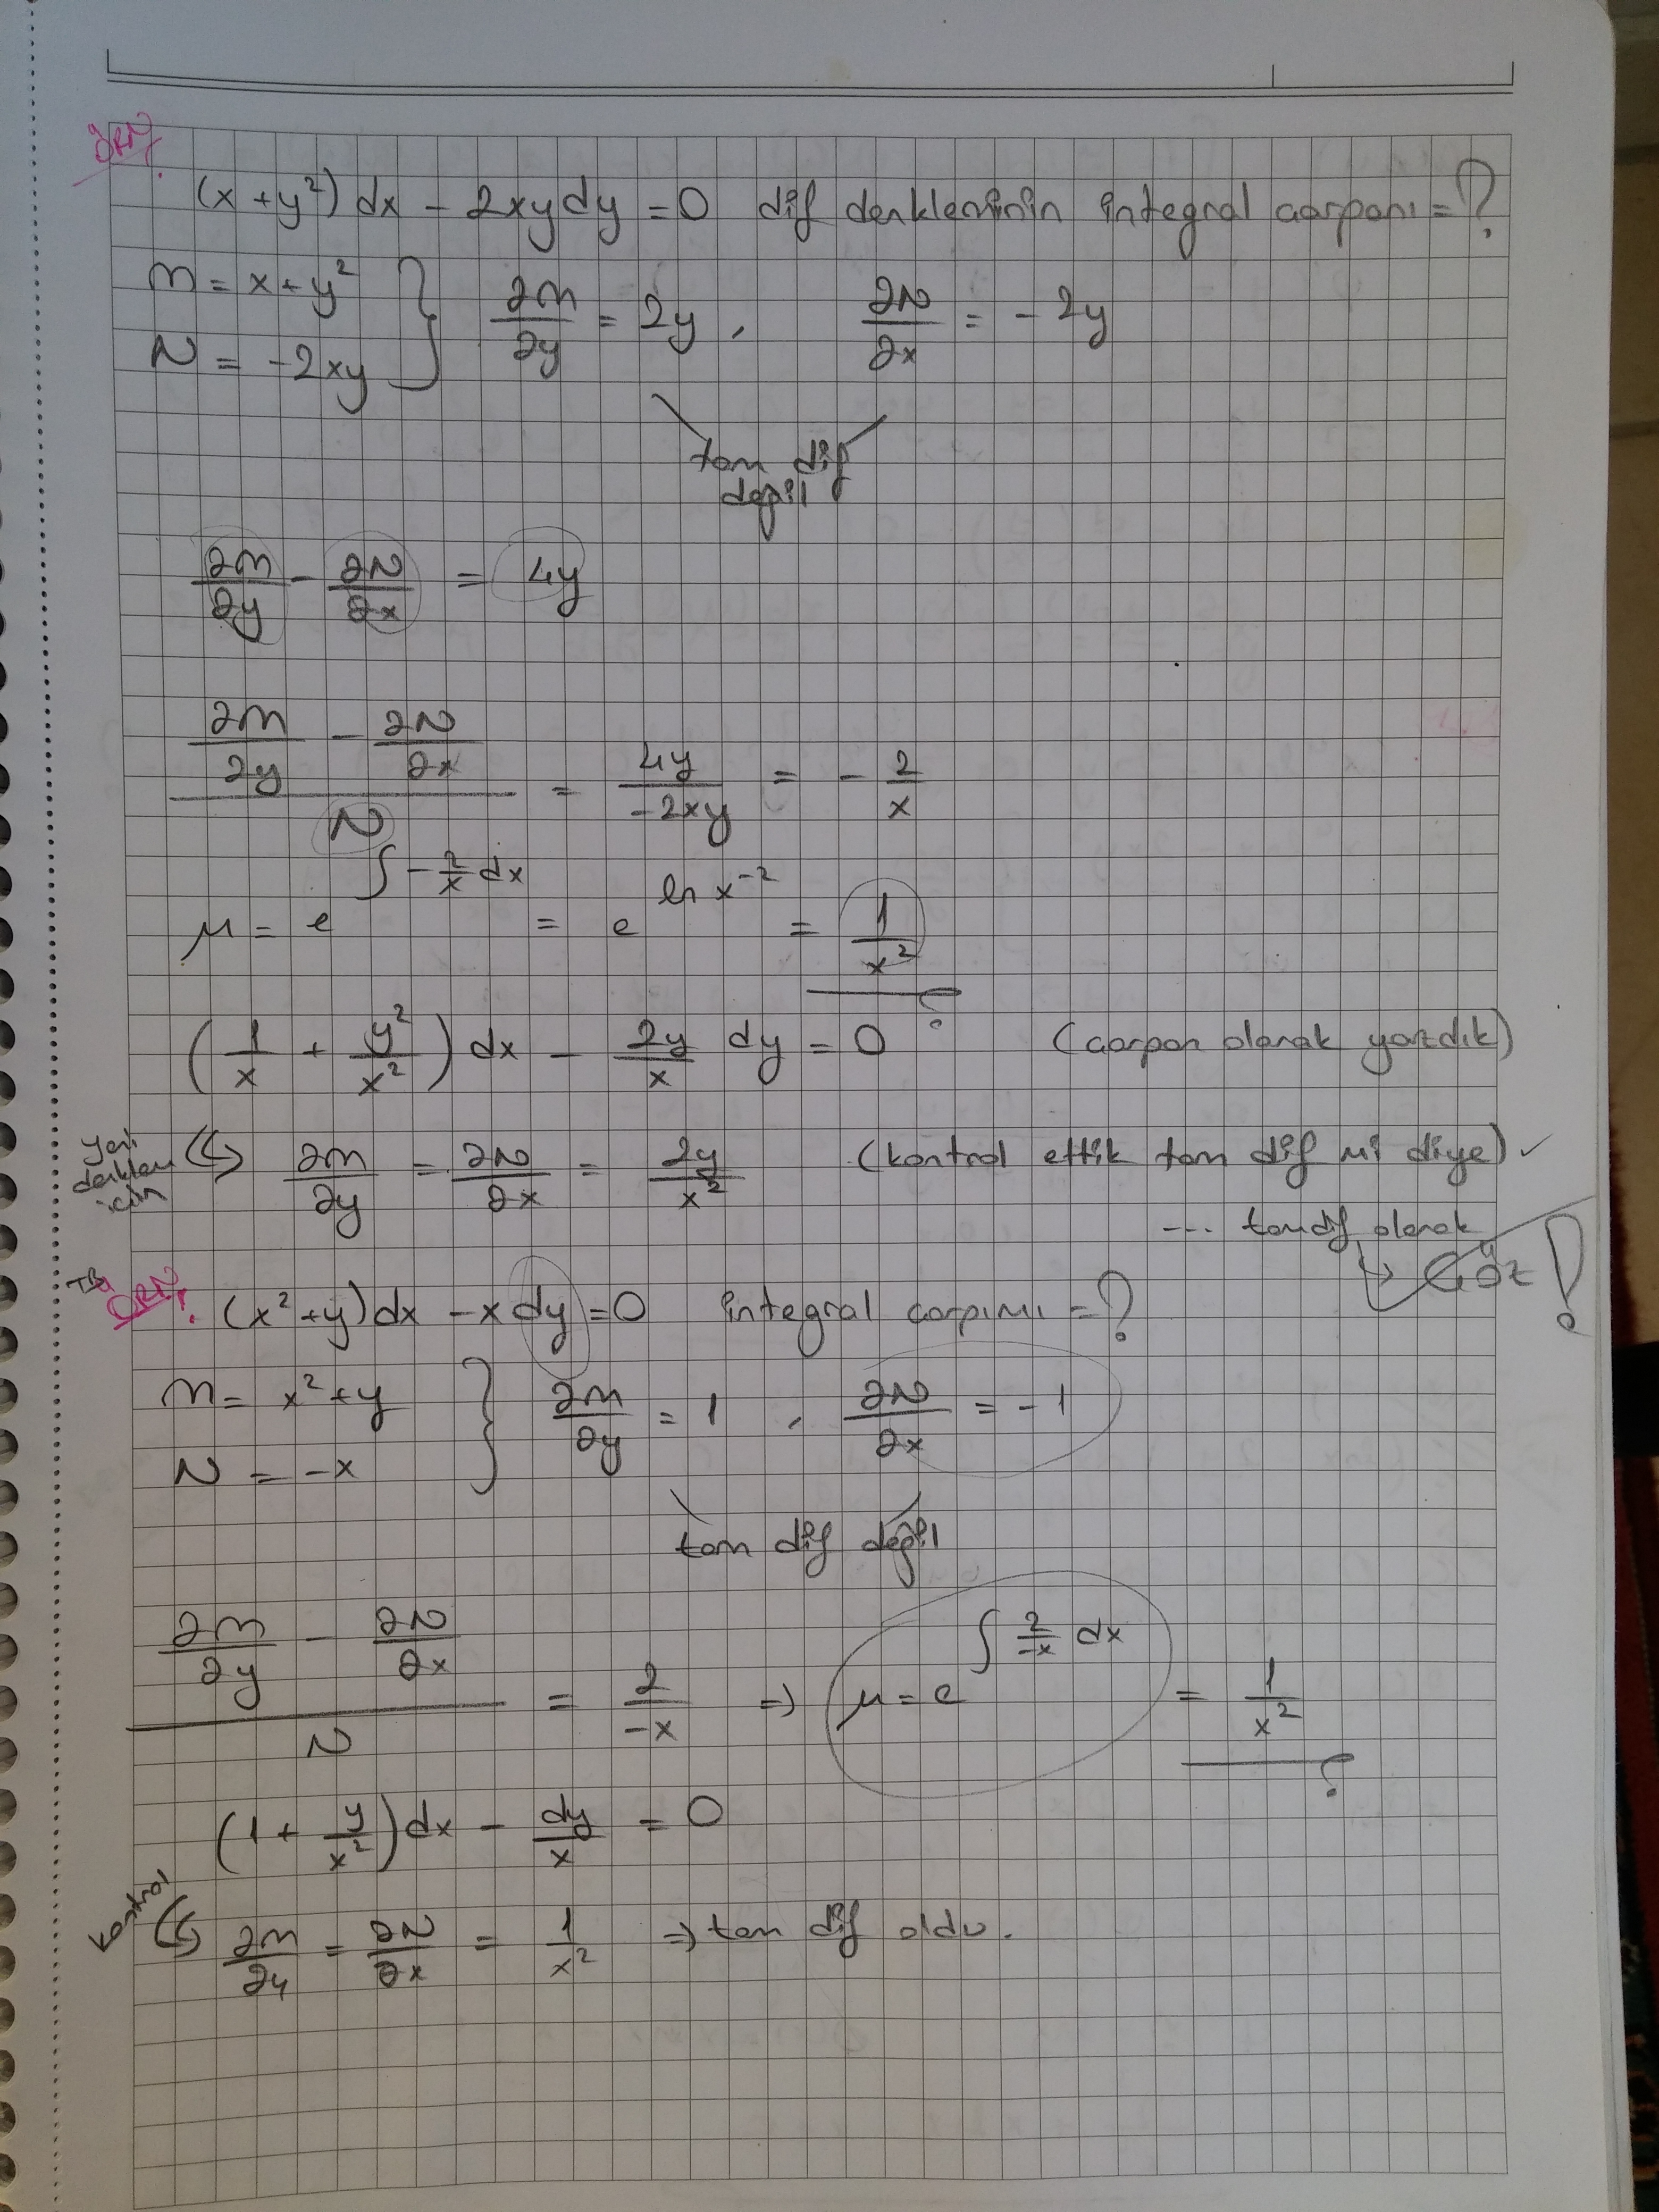 ÖRN.
(x+y²)dx - 2xydy = 0 dif denkleminin integral çarpanı = ?
M = x+y² } ∂M/∂y = 2y , ∂N/∂x = -2y
N = -2xy
tam dif
değil
∂M/∂y - ∂N/∂x = 4y
(∂M/∂y - ∂N/∂x)/N = 4y/-2xy = - 2/x
μ = e^(∫ -2/x dx) = e^(ln x⁻²) = 1/x²
(1/x + y²/x²) dx - 2y/x dy = 0 (çarpan olarak yazdık)
yeni denklem için ↪ ∂M/∂y = ∂N/∂x = 2y/x² (kontrol ettik tam dif mi diye) ✓
--- tamdif olarak
↳ Çöz !
ÖRN. (x²+y)dx - xdy = 0 integral çarpımı = ?
M = x²+y } ∂M/∂y = 1 , ∂N/∂x = -1
N = -x
tam dif değil
(∂M/∂y - ∂N/∂x)/N = 2/-x ⇒ μ = e^(∫ 2/-x dx) = 1/x²
(1 + y/x²)dx - dy/x = 0
kontrol ↪ ∂M/∂y = ∂N/∂x = 1/x² ⇒ tam dif oldu.